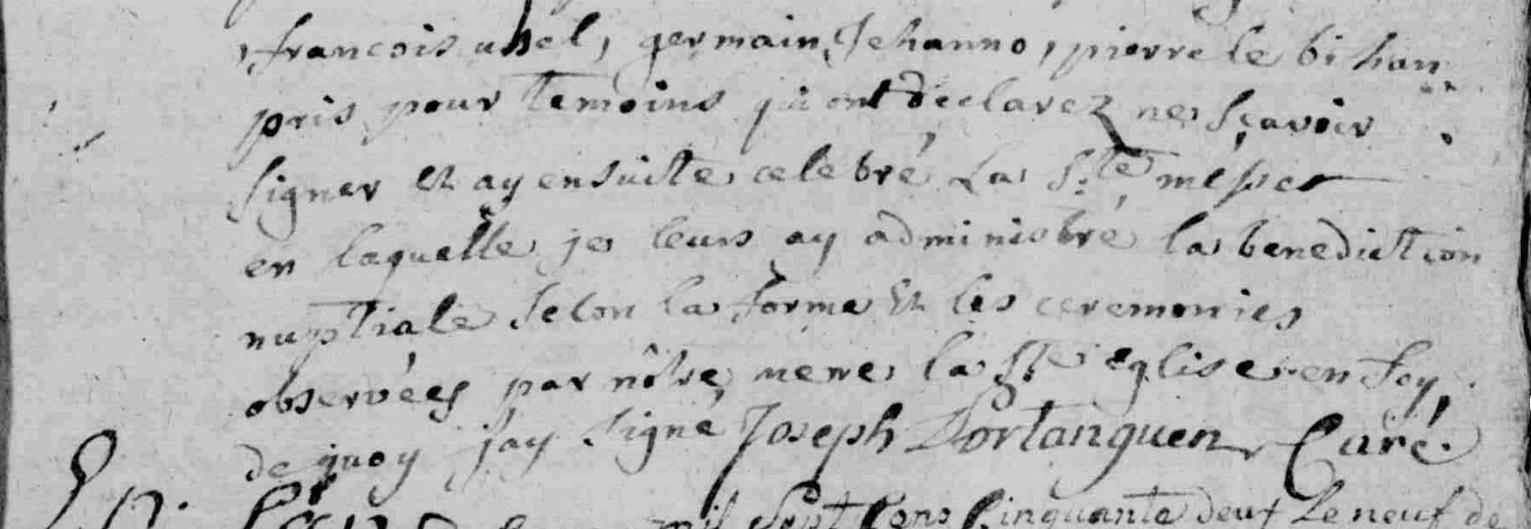 , francois uzel, germain Jehanno, pierre le bihan
pris pour temoins qui ont declarez ne sçavoir
signer et ay ensuite celebré La Ste messe
en laquelle je leurs ay administré la benediction
nuptiale selon la forme et les ceremonies
observées par nôtre mere la Ste eglise en foy
de quoy j'ay signé Joseph Portanguen Curé.
mil sept Cens Cinquante deux le neuf de